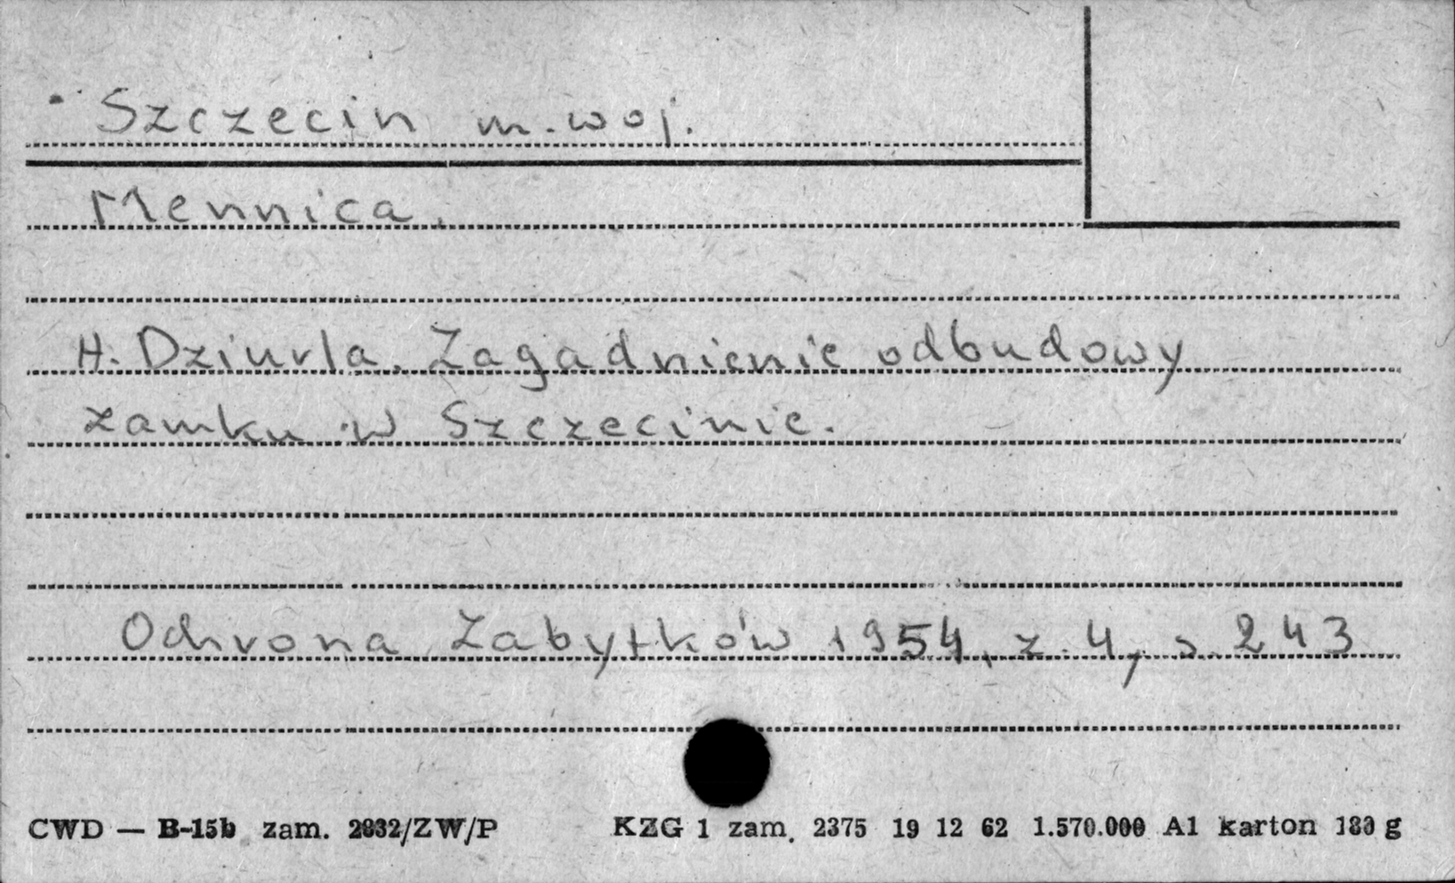 Szczecin m. woj.
Mennica.
H. Dziurla, Zagadnienie odbudowy
zamku w Szczecinie.
Ochrona Zabytków 1954, z. 4, s. 243
CWD — B-15b zam. 2832/ZW/P KZG 1 zam. 2375 19 12 62 1.570.000 A1 karton 180 g